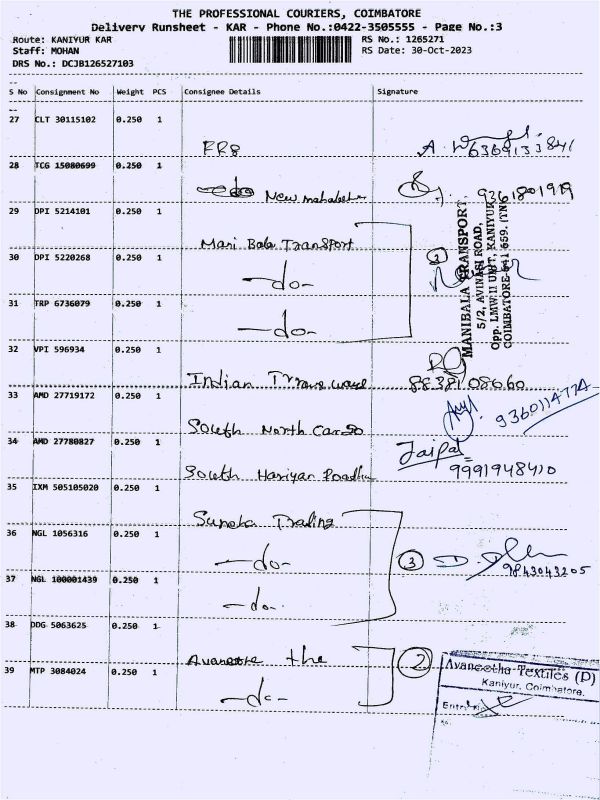 THE PROFESSIONAL COURIERS, COIMBATORE
Delivery Runsheet - KAR - Phone No.:0422-3505555 - Page No.:3
Route: KANIYUR KAR
RS No.: 1265271
Staff: MOHAN
RS Date: 30-Oct-2023
DRS No.: DCJB126527103
S No Consignment No Weight PCS Consignee Details Signature
27 CLT 30115102 0.250 1
FR8
6369133841
28 TCG 15080699 0.250 1
New
9361801919
29 DPI 5214101 0.250 1
Mani Bala Transport
30 DPI 5220268 0.250 1
-do-
3
31 TRP 6736079 0.250 1
-do-
MANIBALA TRANSPORT,
5/2, AVINASI ROAD,
Opp. LMW II UNIT, KANIYUR,
COIMBATORE-641 659. (TN)
32 VPI 596934 0.250 1
Indian Transways
8838108660
33 AMD 27719172 0.250 1
South North Cargo
9360114774
34 AMD 27780827 0.250 1
South Hariyan
Jaipal
9991948410
35 IXM 505105020 0.250 1
Suneha Trading
36 NGL 1056316 0.250 1
-do-
3
9843043205
37 NGL 100001439 0.250 1
-do-
38 DDG 5063625 0.250 1
the
2
39 MTP 3084024 0.250 1
-do-
Avaneetha Textiles (P)
Kaniyur, Coimbatore.
Entry No